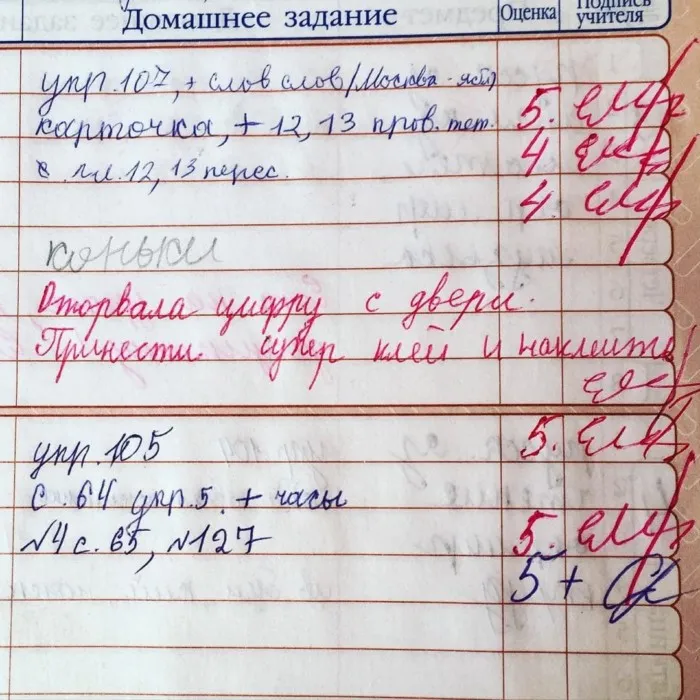 Домашнее задание
Оценка
Подпись учителя
упр. 107, + слов слов (Москва - ябл)
5.
карточка, + 12, 13 пров. тет.
4
с. 12, 13 перес.
4.
коньки
Оторвала цифру с двери.
Принести супер клей и наклеить
упр. 105
5.
с. 64 упр. 5. + часы
№4 с. 65, №127
5.
5+